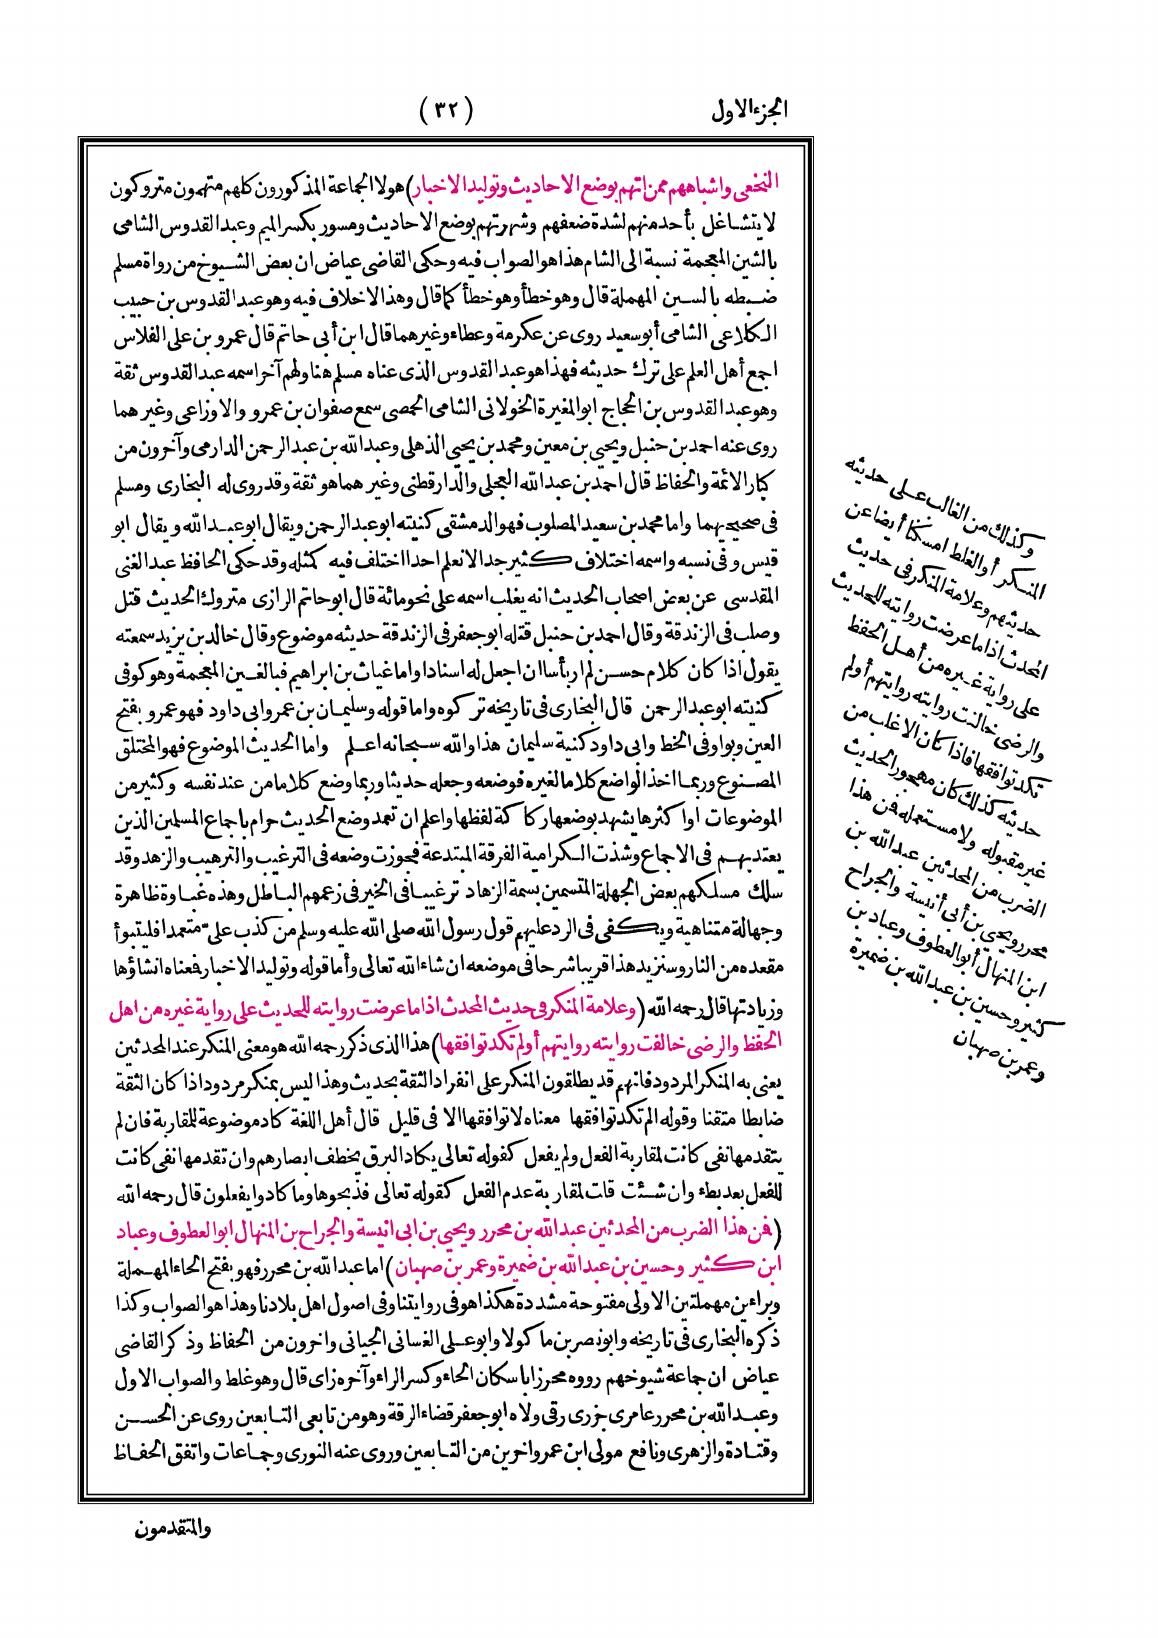 الجزء الاول
(٣٢)
النخعى واشباههم ممن إتهم بوضع الاحاديث وتوليد الاخبار) هولا الجماعة المذكورون كلهم متهمون متروكون
لا يتشاغل بأحد منهم لشدة ضعفهم وشهرتهم بوضع الاحاديث ومسور بكسر الميم وعبد القدوس الشامى
بالشين المعجمة نسبة الى الشام هذا هو الصواب فيه وحكى القاضى عياض ان بعض الشيوخ من رواة مسلم
ضبطه بالسين المهملة قال وهو خطأ وهو خطأ كما قال وهذا لاخلاف فيه وهو عبد القدوس بن حبيب
الكلاعى الشامى أبو سعيد روى عن عكرمة وعطاء وغيرهما قال ابن أبى حاتم قال عمرو بن على الفلاس
اجمع أهل العلم على ترك حديثه فهذا هو عبد القدوس الذى عناه مسلم هنا ولهم آخر اسمه عبد القدوس ثقة
وهو عبد القدوس بن الحجاج ابو المغيرة الخولانى الشامى الحمصى سمع صفوان بن عمرو والاوزاعى وغيرهما
روى عنه احمد بن حنبل ويحيى بن معين ومحمد بن يحيى الذهلى وعبد الله بن عبد الرحمن الدارمى وآخرون من
كبار الائمة والحفاظ قال احمد بن عبد الله العجلى والدارقطنى وغيرهما هو ثقة وقد روى له البخارى ومسلم
فى صحيحيهما واما محمد بن سعيد المصلوب فهو الدمشقى كنيته ابو عبد الرحمن ويقال ابو عبد الله ويقال ابو
قيس وفى نسبه واسمه اختلاف كثير جدا لانعلم احدا اختلف فيه كمثله وقد حكى الحافظ عبد الغنى
المقدسى عن بعض اصحاب الحديث انه يغلب اسمه على نحو مائة قال ابو حاتم الرازى متروك الحديث قتل
وصلب فى الزندقة وقال احمد بن حنبل قتله ابو جعفر فى الزندقة حديثه موضوع وقال خالد بن يزيد سمعته
يقول اذا كان كلام حسن لم ار بأسا ان اجعل له اسنادا واما غياث بن ابراهيم فبالغين المعجمة وهو كوفى
كنيته ابو عبد الرحمن قال البخارى فى تاريخه تركوه واما قوله وسليمان بن عمر وابى داود فهو عمرو بفتح
العين وبواو فى الخط وابى داود كنية سليمان هذا والله سبحانه اعلم واما الحديث الموضوع فهو المختلق
المصنوع وربما اخذ الواضع كلاما لغيره فوضعه وجعله حديثا وربما وضع كلاما من عند نفسه وكثير من
الموضوعات او اكثرها يشهد بوضعها ركاكة لفظها واعلم ان تعمد وضع الحديث حرام باجماع المسلمين الذين
يعتد بهم فى الاجماع وشذت الكرامية الفرقة المبتدعة فجوزت وضعه فى الترغيب والترهيب والزهد وقد
سلك مسلكهم بعض الجهلة المتسمين بسمة الزهاد ترغيبا فى الخير فى زعمهم الباطل وهذه غباوة ظاهرة
وجهالة متناهية ويكفى فى الرد عليهم قول رسول الله صلى الله عليه وسلم من كذب على متعمدا فليتبوأ
مقعده من النار وسنزيد هذا قريبا شرحا فى موضعه ان شاء الله تعالى وأما قوله وتوليد الاخبار فمعناه انشاؤها
وزيادتها قال رحمه الله (وعلامة المنكر فى حديث المحدث اذا ما عرضت روايته للحديث على رواية غيره من اهل
الحفظ والرضى خالفت روايته روايتهم أو لم تكد توافقها) هذا الذى ذكر رحمه الله هو معنى المنكر عند المحدثين
يعنى به المنكر المردود فانهم قد يطلقون المنكر على انفراد الثقة بحديث وهذا ليس بمنكر مردود اذا كان الثقة
ضابطا متقنا وقوله او لم تكد توافقها معناه لا توافقها الا فى قليل قال أهل اللغة كاد موضوعة للمقاربة فان لم
يتقدمها نفى كانت لمقاربة الفعل ولم يفعل كقوله تعالى يكاد البرق يخطف ابصارهم وان تقدمها نفى كانت
للفعل بعد بطء وان شئت قلت لمقاربة عدم الفعل كقوله تعالى فذبحوها وما كادوا يفعلون قال رحمه الله
(فمن هذا الضرب من المحدثين عبد الله بن محرر ويحيى بن ابى انيسة والجراح بن المنهال ابو العطوف وعباد
ابن كثير وحسين بن عبد الله بن ضميرة وعمر بن صهبان) اما عبد الله بن محرر فهو بفتح الحاء المهملة
وبراءين مهملتين الاولى مفتوحة مشددة هكذا هو فى روايتنا وفى اصول اهل بلادنا وهذا هو الصواب وكذا
ذكره البخارى فى تاريخه وابو نصر بن ماكولا وابو على الغسانى الجيانى واخرون من الحفاظ وذكر القاضى
عياض ان جماعة شيوخهم رووه محرزا باسكان الحاء وكسر الراء وآخره زاى قال وهو غلط والصواب الاول
وعبد الله بن محرر عامرى جزرى رقى ولاه ابو جعفر قضاء الرقة وهو من تابعى التابعين روى عن الحسن
وقتادة والزهرى ونافع مولى ابن عمر واخرين من التابعين وروى عنه الثورى وجماعات واتفق الحفاظ
والمتقدمون
وكذلك من الغالب على حديثه
المنكر أو الغلط امسكنا أيضا عن
حديثهم وعلامة المنكر فى حديث
المحدث اذا ما عرضت روايته للحديث
على رواية غيره من أهل الحفظ
والرضى خالفت روايته روايتهم أو لم
تكد توافقها فاذا كان الاغلب من
حديثه كذلك كان مهجور الحديث
غير مقبوله ولا مستعمله فمن هذا
الضرب من المحدثين عبد الله بن
محرر ويحيى بن أبى أنيسة والجراح
ابن المنهال أبو العطوف وعباد بن
كثير وحسين بن عبد الله بن ضميرة
وعمر بن صهبان